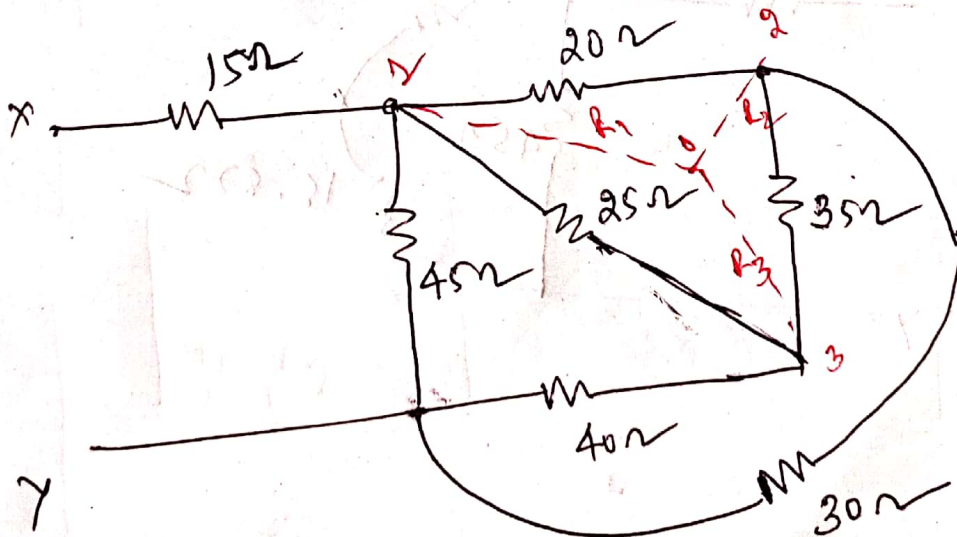 X
15Ω
1
20Ω
2
R1
0
R2
25Ω
35Ω
R3
45Ω
3
40Ω
Y
30Ω